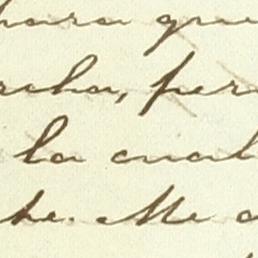 para que
rcha, per
la cual
he. Me